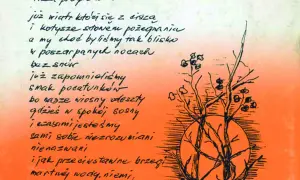 już wiatr kłóci się z ciszą
i kołysze słowem pożegnania
a my choć byliśmy tak blisko
w poszarpanych nocach
bez snów
już zapomnieliśmy
smak pocałunków
bo nasze wiosny odeszły
gdzieś w spokój sosny
i czasami jesteśmy
sami sobie niezrozumiani
nienazwani
i jak przeciwstawne brzegi
martwej wody, niemi,